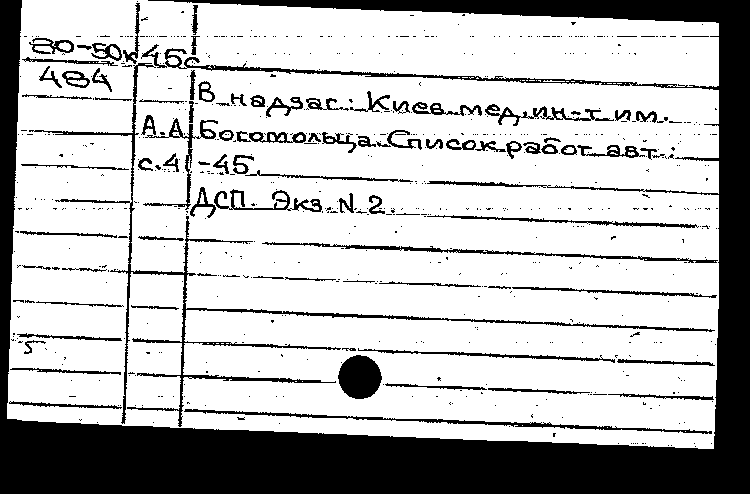 80-50к 45с
484
В надзаг.: Киев. мед. ин-т им.
А.А. Богомольца. Список работ авт.:
с.41-45.
ДСП. Экз. N 2.
5